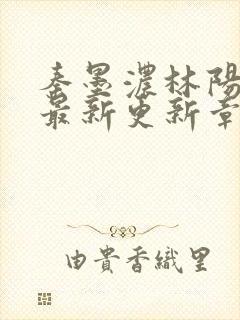 秦墨濃林陽
最新更新章
由貴香織里